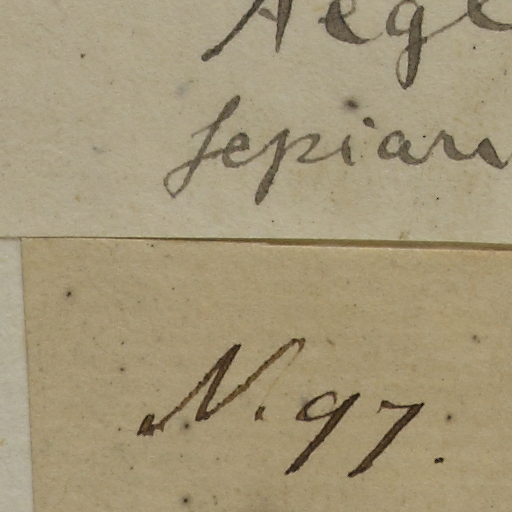 Aegl
sepiar
N. 97.